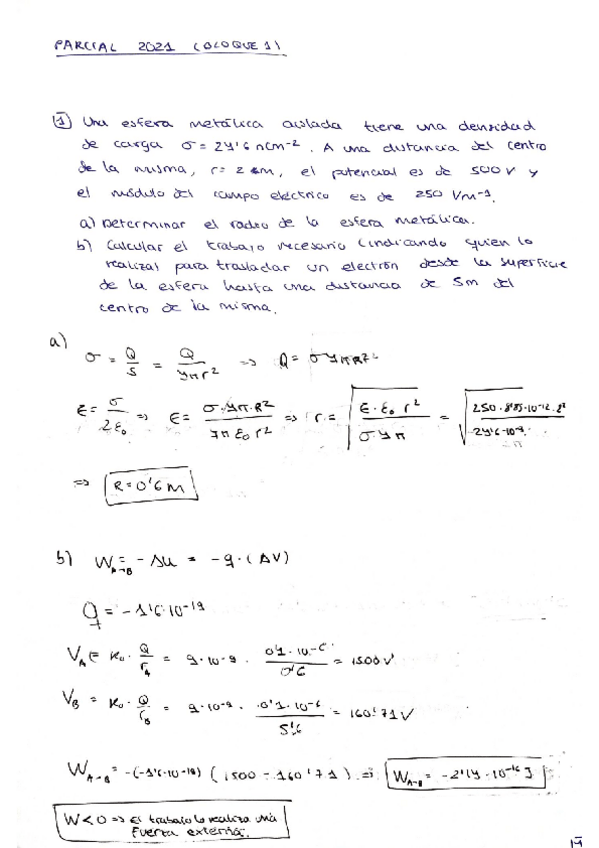 PARCIAL 2021 (BLOQUE 1)
1 Una esfera metálica aislada tiene una densidad
de carga σ = 24'6 nCm⁻². A una distancia del centro
de la misma, r = 2 m, el potencial es de 500 V y
el módulo del campo eléctrico es de 250 Vm⁻¹.
a) Determinar el radio de la esfera metálica.
b) Calcular el trabajo necesario (indicando quien lo
realiza) para trasladar un electrón desde la superficie
de la esfera hasta una distancia de 5m del
centro de la misma.
a)
σ = Q/S = Q/4πr² => Q = σ4πR²
E = σ/2ε₀ => E = σ·4π·R²/4π ε₀ r² => r = √(E·ε₀ r²/σ·4π) = √(250·8'85·10⁻¹²·2²/24'6·10⁻⁹)
=> R = 0'6 m
b) W A→B = -Δu = -q·(ΔV)
q = -1'6·10⁻¹⁹
V_A = K₀·Q/r_A = 9·10⁻⁹ · 0'1·10⁻⁶/0'6 = 1500 V
V_B = K₀·Q/r_B = 9·10⁻⁹ · 0'1·10⁻⁶/5'6 = 160'71 V
W A→B = -(-1'6·10⁻¹⁹) (1500 - 160'71) => W A→B = -2'14·10⁻¹⁶ J
W<0 => El trabajo lo realiza una
fuerza externa.